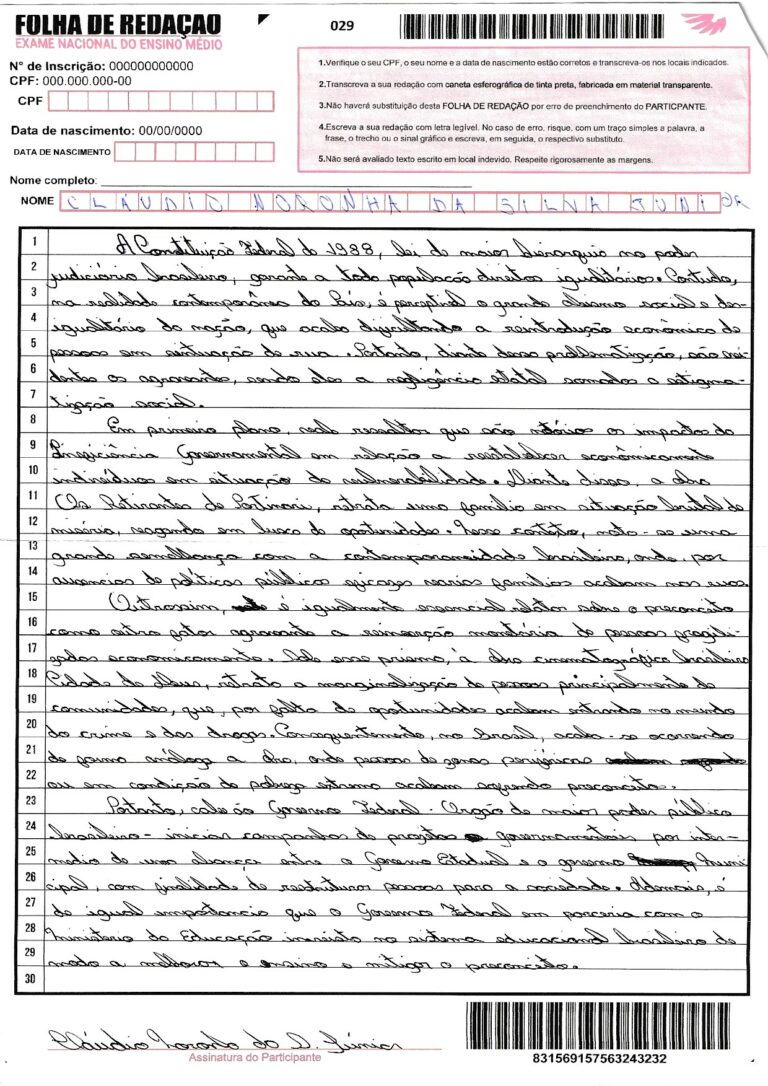 FOLHA DE REDAÇÃO
EXAME NACIONAL DO ENSINO MÉDIO
029
N° de Inscrição: 000000000000
CPF: 000.000.000-00
CPF
Data de nascimento: 00/00/0000
DATA DE NASCIMENTO
1.Verifique o seu CPF, o seu nome e a data de nascimento estão corretos e transcreva-os nos locais indicados.
2.Transcreva a sua redação com caneta esferográfica de tinta preta, fabricada em material transparente.
3.Não haverá substituição desta FOLHA DE REDAÇÃO por erro de preenchimento do PARTICPANTE.
4.Escreva a sua redação com letra legível. No caso de erro, risque, com um traço simples a palavra, a
frase, o trecho ou o sinal gráfico e escreva, em seguida, o respectivo substituto.
5.Não será avaliado texto escrito em local indevido. Respeite rigorosamente as margens.
Nome completo:
NOME CLÁUDIO NORONHA DA SILVA JUNIOR
1 A Constituição Federal de 1988, lei de maior hierarquia no poder
2 judiciário brasileiro, garante a toda população direitos igualitários. Contudo,
3 na realidade contemporânea do País, é perceptível o grande abismo social e des-
4 igualitário da nação, que acaba dificultando a reintrodução econômica de
5 pessoas em situação de rua. Portanto, diante dessa problematização, são evi-
6 dentes os agravantes, sendo eles a negligência estatal somados a estigma-
7 tização social.
8 Em primeiro plano, vale ressaltar que são notórios os impactos da
9 Ineficiência Governamental em relação a reestabelecer econômicamente
10 indivíduos em situação de vulnerabilidade. Diante disso, a obra
11 Os Retirantes de Portinari, retrata uma família em situação brutal de
12 miséria, vagando em busca de oportunidades. Nesse contexto, nota-se uma
13 grande semelhança com a contemporaneidade brasileira, onde, por
14 ausencias de políticas públicas eficazes varias famílias acabam nas ruas.
15 Outrossim, é igualmente essencial relatar sobre o preconceito
16 como outro fator agravante a reinserção monetária de pessoas fragili-
17 zadas economicamente. Sob esse prisma, a obra cinematográfica brasileira
18 Cidade de Deus, retrata a marginalização de pessoas principalmente de
19 comunidades, que, por falta de oportunidades acabam entrando no mundo
20 do crime e das drogas. Consequentemente, no Brasil, acaba-se ocorrendo
21 de forma análoga a obra, onde pessoas de zonas periféricas
22 ou em condição de pobreza extrema acabam sofrendo preconceito.
23 Portanto, cabe ao Governo Federal - Orgão de maior poder público
24 brasileiro - iniciar campanhas de projetos governamentais por inter-
25 medio de uma aliança entre o Governo Estadual e o governo Muni-
26 cipal, com finalidade de reestruturar pessoas para a sociedade. Ademais, é
27 de igual importancia que o Governo Federal em parceria com o
28 Ministério da Educação invista no sistema educacional brasileiro de
29 modo a melhorar o ensino e mitigar o preconceito.
30
Cláudio Noronha da S. Júnior
Assinatura do Participante
831569157563243232